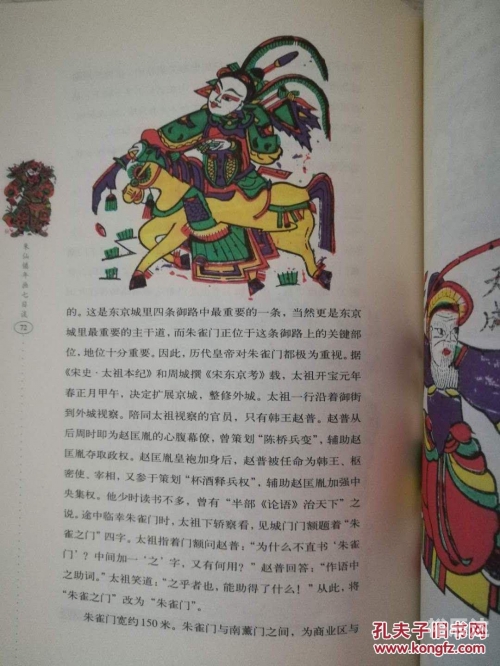 的。这是东京城里四条御路中最重要的一条，当然更是东京
城里最重要的主干道，而朱雀门正位于这条御路上的关键部
位，地位十分重要。因此，历代皇帝对朱雀门都极为重视。据
《宋史·太祖本纪》和周城撰《宋东京考》载，太祖开宝元年
春正月甲午，决定扩展京城，整修外城。太祖一行沿着御街
到外城视察。陪同太祖视察的官员，只有韩王赵普。赵普从
后周时即为赵匡胤的心腹幕僚，曾策划“陈桥兵变”，辅助赵
匡胤夺取政权。赵匡胤皇袍加身后，赵普被任命为韩王、枢
密使、宰相，又参于策划“杯酒释兵权”，辅助赵匡胤加强中
央集权。他少时读书不多，曾有“半部《论语》治天下”之
说。途中临幸朱雀门时，太祖下轿察看，见城门门额题着“朱
雀之门”四字。太祖指着门额问赵普：“为什么不直书‘朱雀
门’？中间加一‘之’字，又有何用？”赵普回答：“作语中
之助词。”太祖笑道：“之乎者也，能助得了什么！”从此，将
“朱雀之门”改为“朱雀门”。
朱雀门宽约150米。朱雀门与南薰门之间，为商业区与
朱仙镇年画七日谈
72
孔夫子旧书网
www.kongfz.com